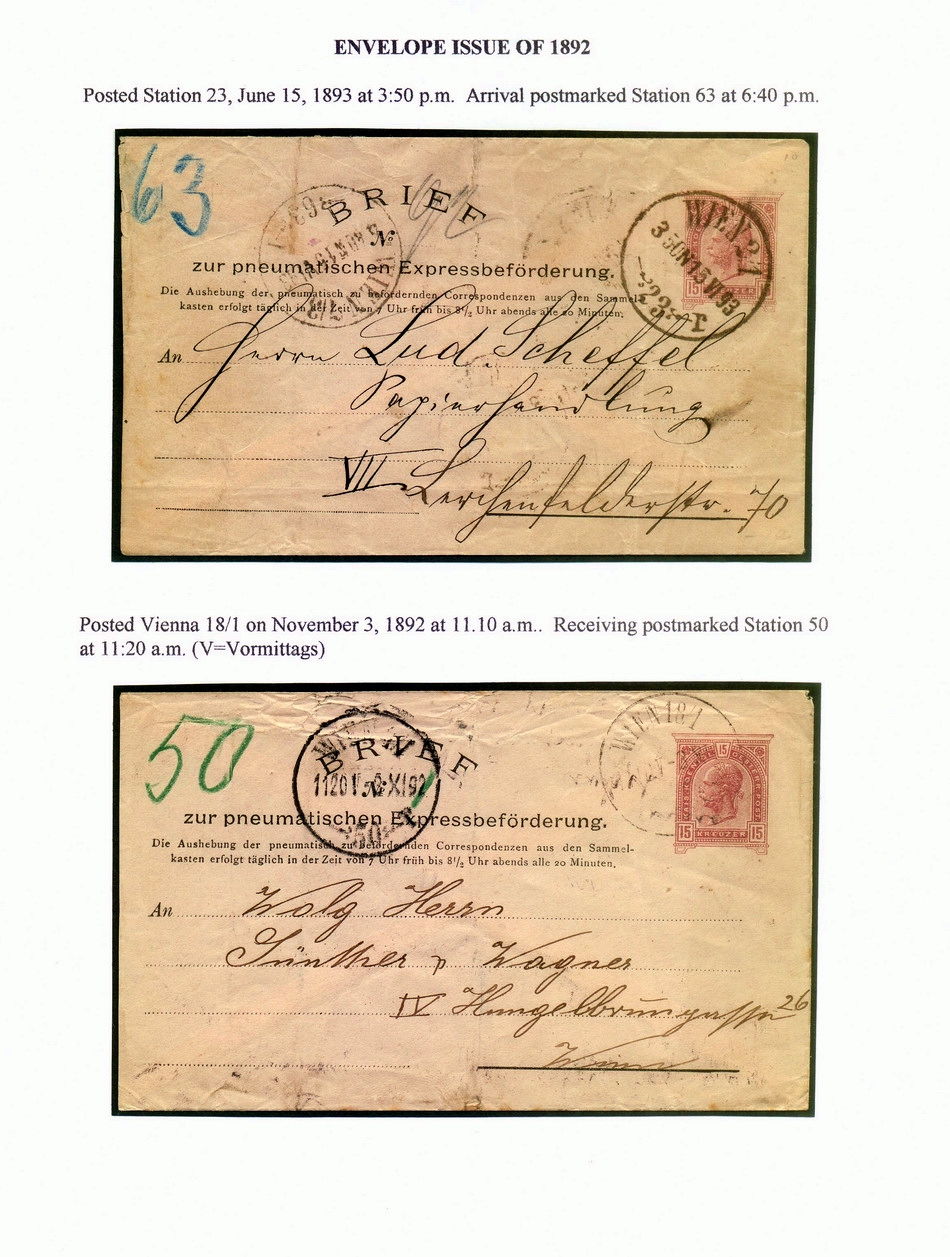 ENVELOPE ISSUE OF 1892
Posted Station 23, June 15, 1893 at 3:50 p.m. Arrival postmarked Station 63 at 6:40 p.m.
63
BRIEF
№
WIEN 3/1
zur pneumatischen Expressbeförderung.
15
23
Die Aushebung der pneumatisch zu befördernden Correspondenzen aus den Sammel-
kasten erfolgt täglich in der Zeit von 7 Uhr früh bis 8½ Uhr abends alle 20 Minuten.
An Herrn Lud. Scheffel
Papierhandlung
VII Lerchenfelderstr. 70
Posted Vienna 18/1 on November 3, 1892 at 11.10 a.m.. Receiving postmarked Station 50
at 11:20 a.m. (V=Vormittags)
50
WIEN 18/1
BRIEF
15
1120V 3 XI 92
№
50
15 KREUZER 15
zur pneumatischen Expressbeförderung.
Die Aushebung der pneumatisch zu befördernden Correspondenzen aus den Sammel-
kasten erfolgt täglich in der Zeit von 7 Uhr früh bis 8½ Uhr abends alle 20 Minuten.
An Wolg Herrn
Günther & Wagner
IV Hungelbrungasse 26
Wien